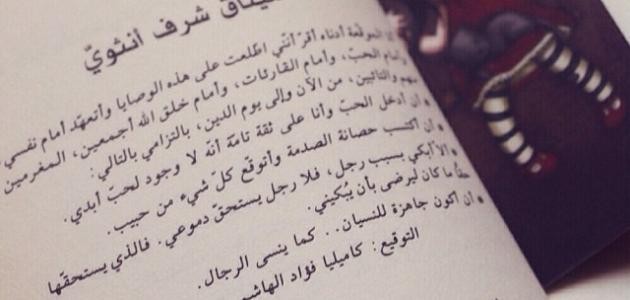 ميثاق شرف أنثويّ
الموقّعة أدناه أقرّ أنّني اطّلعت على هذه الوصايا وأتعهّد أمام نفسي
وأمام الحبّ، وأمام القارئات، وأمام خلق الله أجمعين، المغرمين
منهم والتائبين، من الآن وإلى يوم الدين، بالتزامي بالتالي:
• أن أدخل الحبّ وأنا على ثقة تامّة أنّه لا وجود لحبّ أبدي.
• أن أكتسب حصانة الصدمة وأتوقّع كلّ شيء من حبيب.
• ألاّ أبكي بسبب رجل، فلا رجل يستحقّ دموعي. فالذي يستحقّها
حقّاً ما كان ليرضى بأن يُبكيني.
• أن أكون جاهزة للنسيان.. كما ينسى الرجال.
التوقيع: كاميليا فؤاد